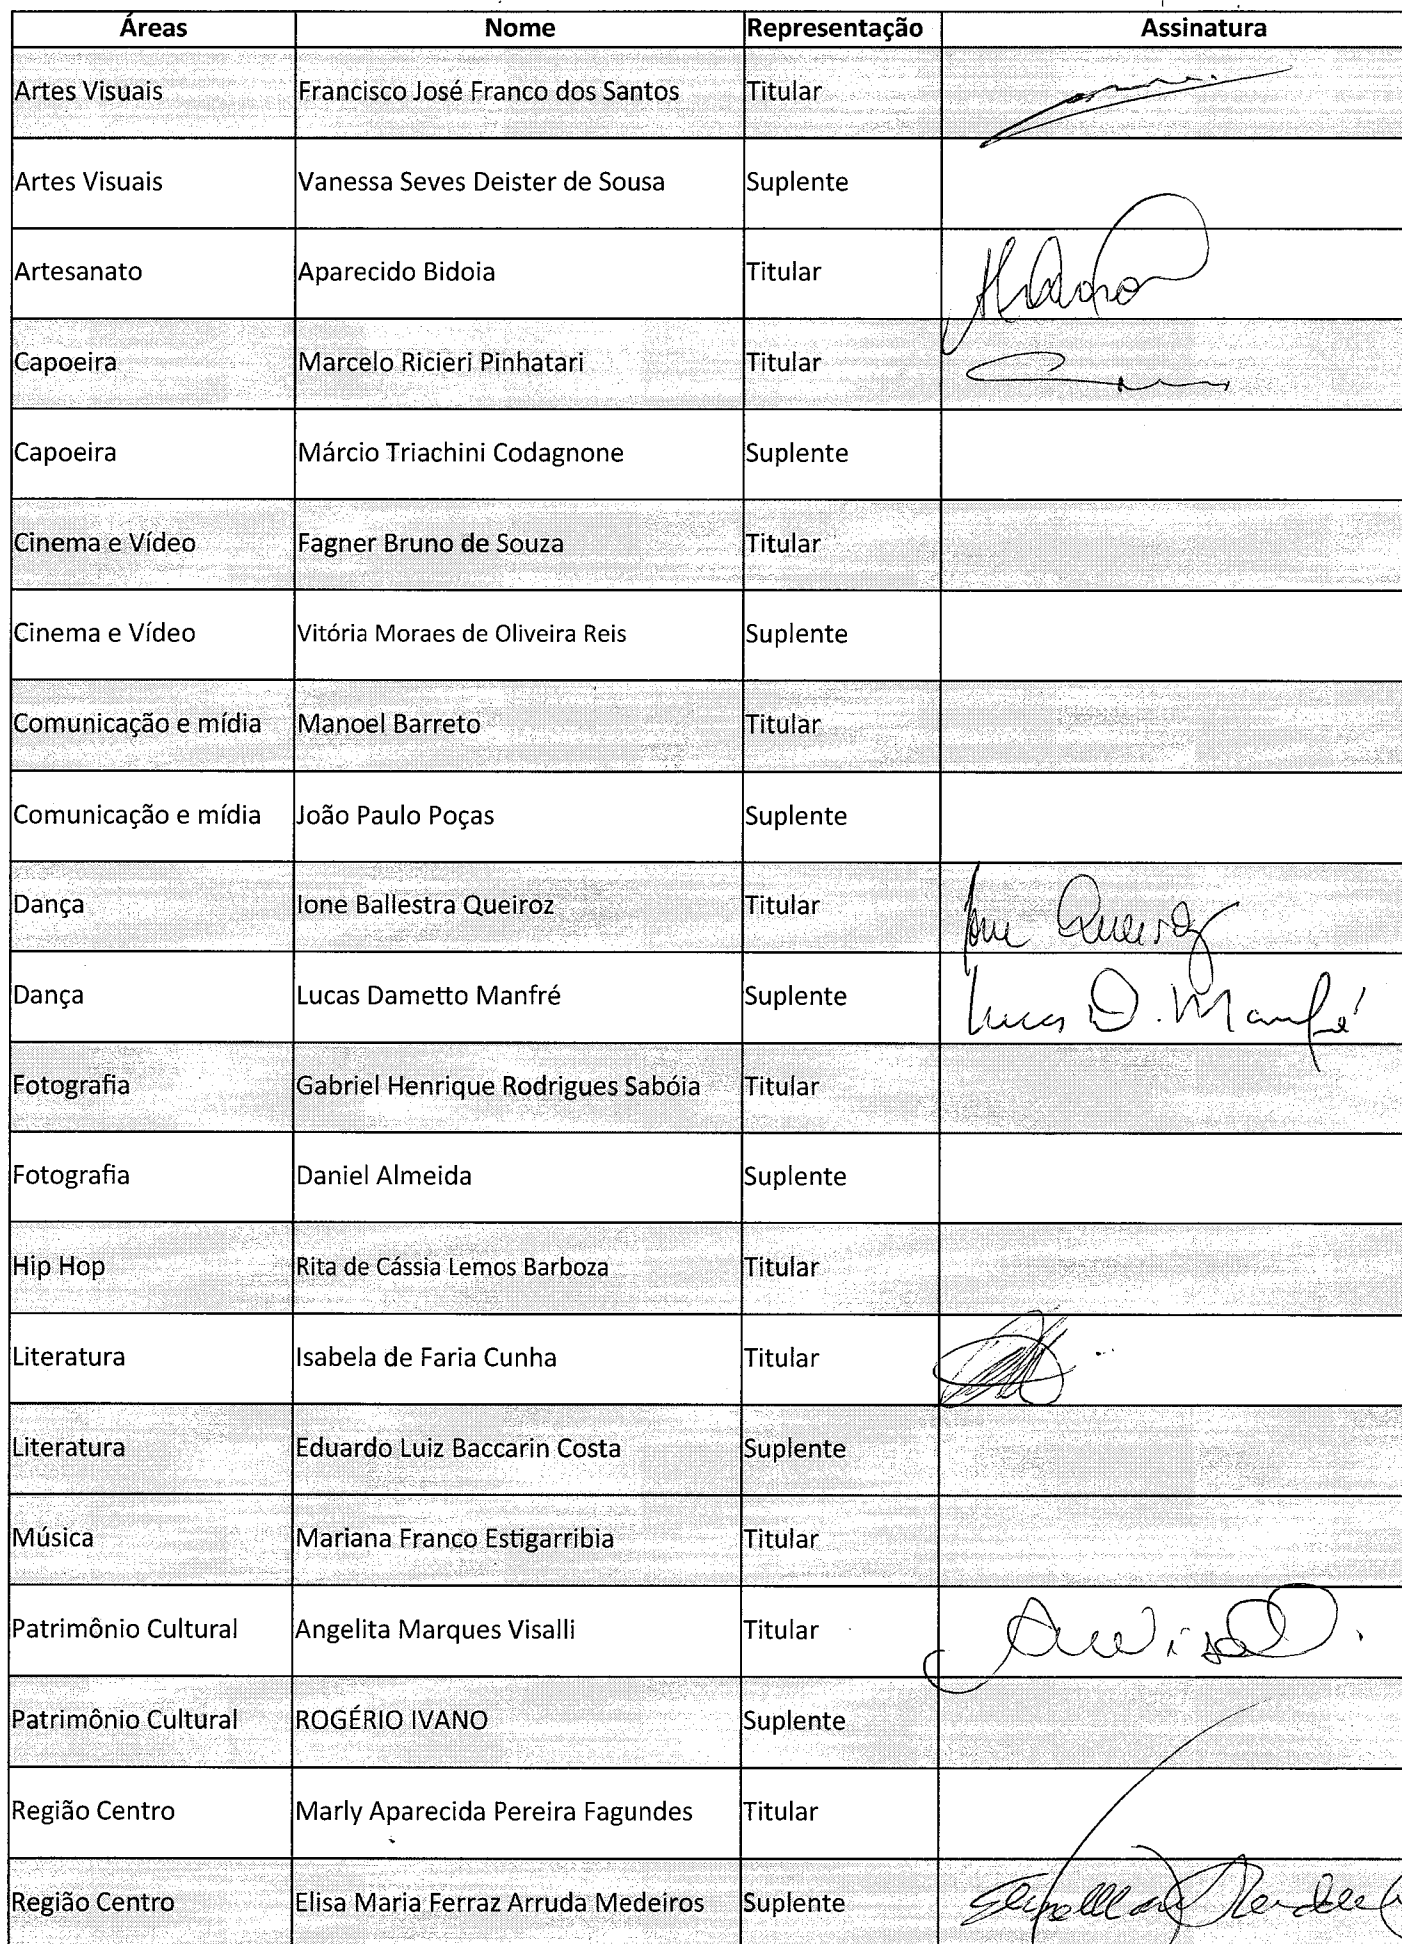 Áreas Nome Representação Assinatura
Artes Visuais Francisco José Franco dos Santos Titular
Artes Visuais Vanessa Seves Deister de Sousa Suplente
Artesanato Aparecido Bidoia Titular
Capoeira Marcelo Ricieri Pinhatari Titular
Capoeira Márcio Triachini Codagnone Suplente
Cinema e Vídeo Fagner Bruno de Souza Titular
Cinema e Vídeo Vitória Moraes de Oliveira Reis Suplente
Comunicação e mídia Manoel Barreto Titular
Comunicação e mídia João Paulo Poças Suplente
Dança Ione Ballestra Queiroz Titular Ione Queiroz
Dança Lucas Dametto Manfré Suplente Lucas D. Manfré
Fotografia Gabriel Henrique Rodrigues Sabóia Titular
Fotografia Daniel Almeida Suplente
Hip Hop Rita de Cássia Lemos Barboza Titular
Literatura Isabela de Faria Cunha Titular
Literatura Eduardo Luiz Baccarin Costa Suplente
Música Mariana Franco Estigarribia Titular
Patrimônio Cultural Angelita Marques Visalli Titular
Patrimônio Cultural ROGÉRIO IVANO Suplente
Região Centro Marly Aparecida Pereira Fagundes Titular
Região Centro Elisa Maria Ferraz Arruda Medeiros Suplente